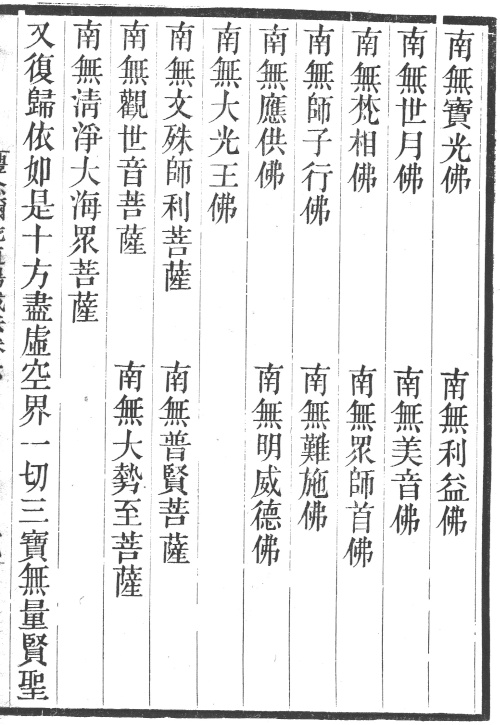 南無寶光佛　南無利益佛
南無世月佛　南無美音佛
南無梵相佛　南無眾師首佛
南無師子行佛　南無難施佛
南無應供佛　南無明威德佛
南無大光王佛
南無文殊師利菩薩　南無普賢菩薩
南無觀世音菩薩　南無大勢至菩薩
南無清淨大海眾菩薩
又復歸依如是十方盡虛空界一切三寶無量賢聖